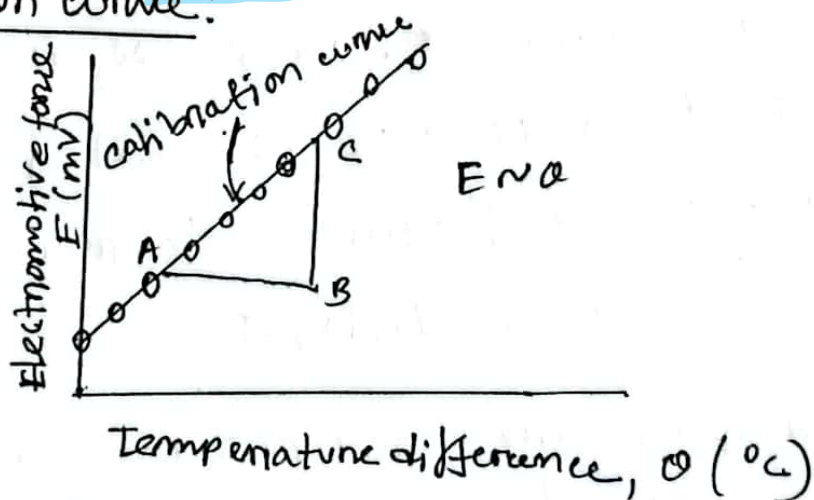 on curve.
Electromotive force
E (mV)
calibration curve
A
C
B
E ~ θ
Temperature difference, θ (°C)